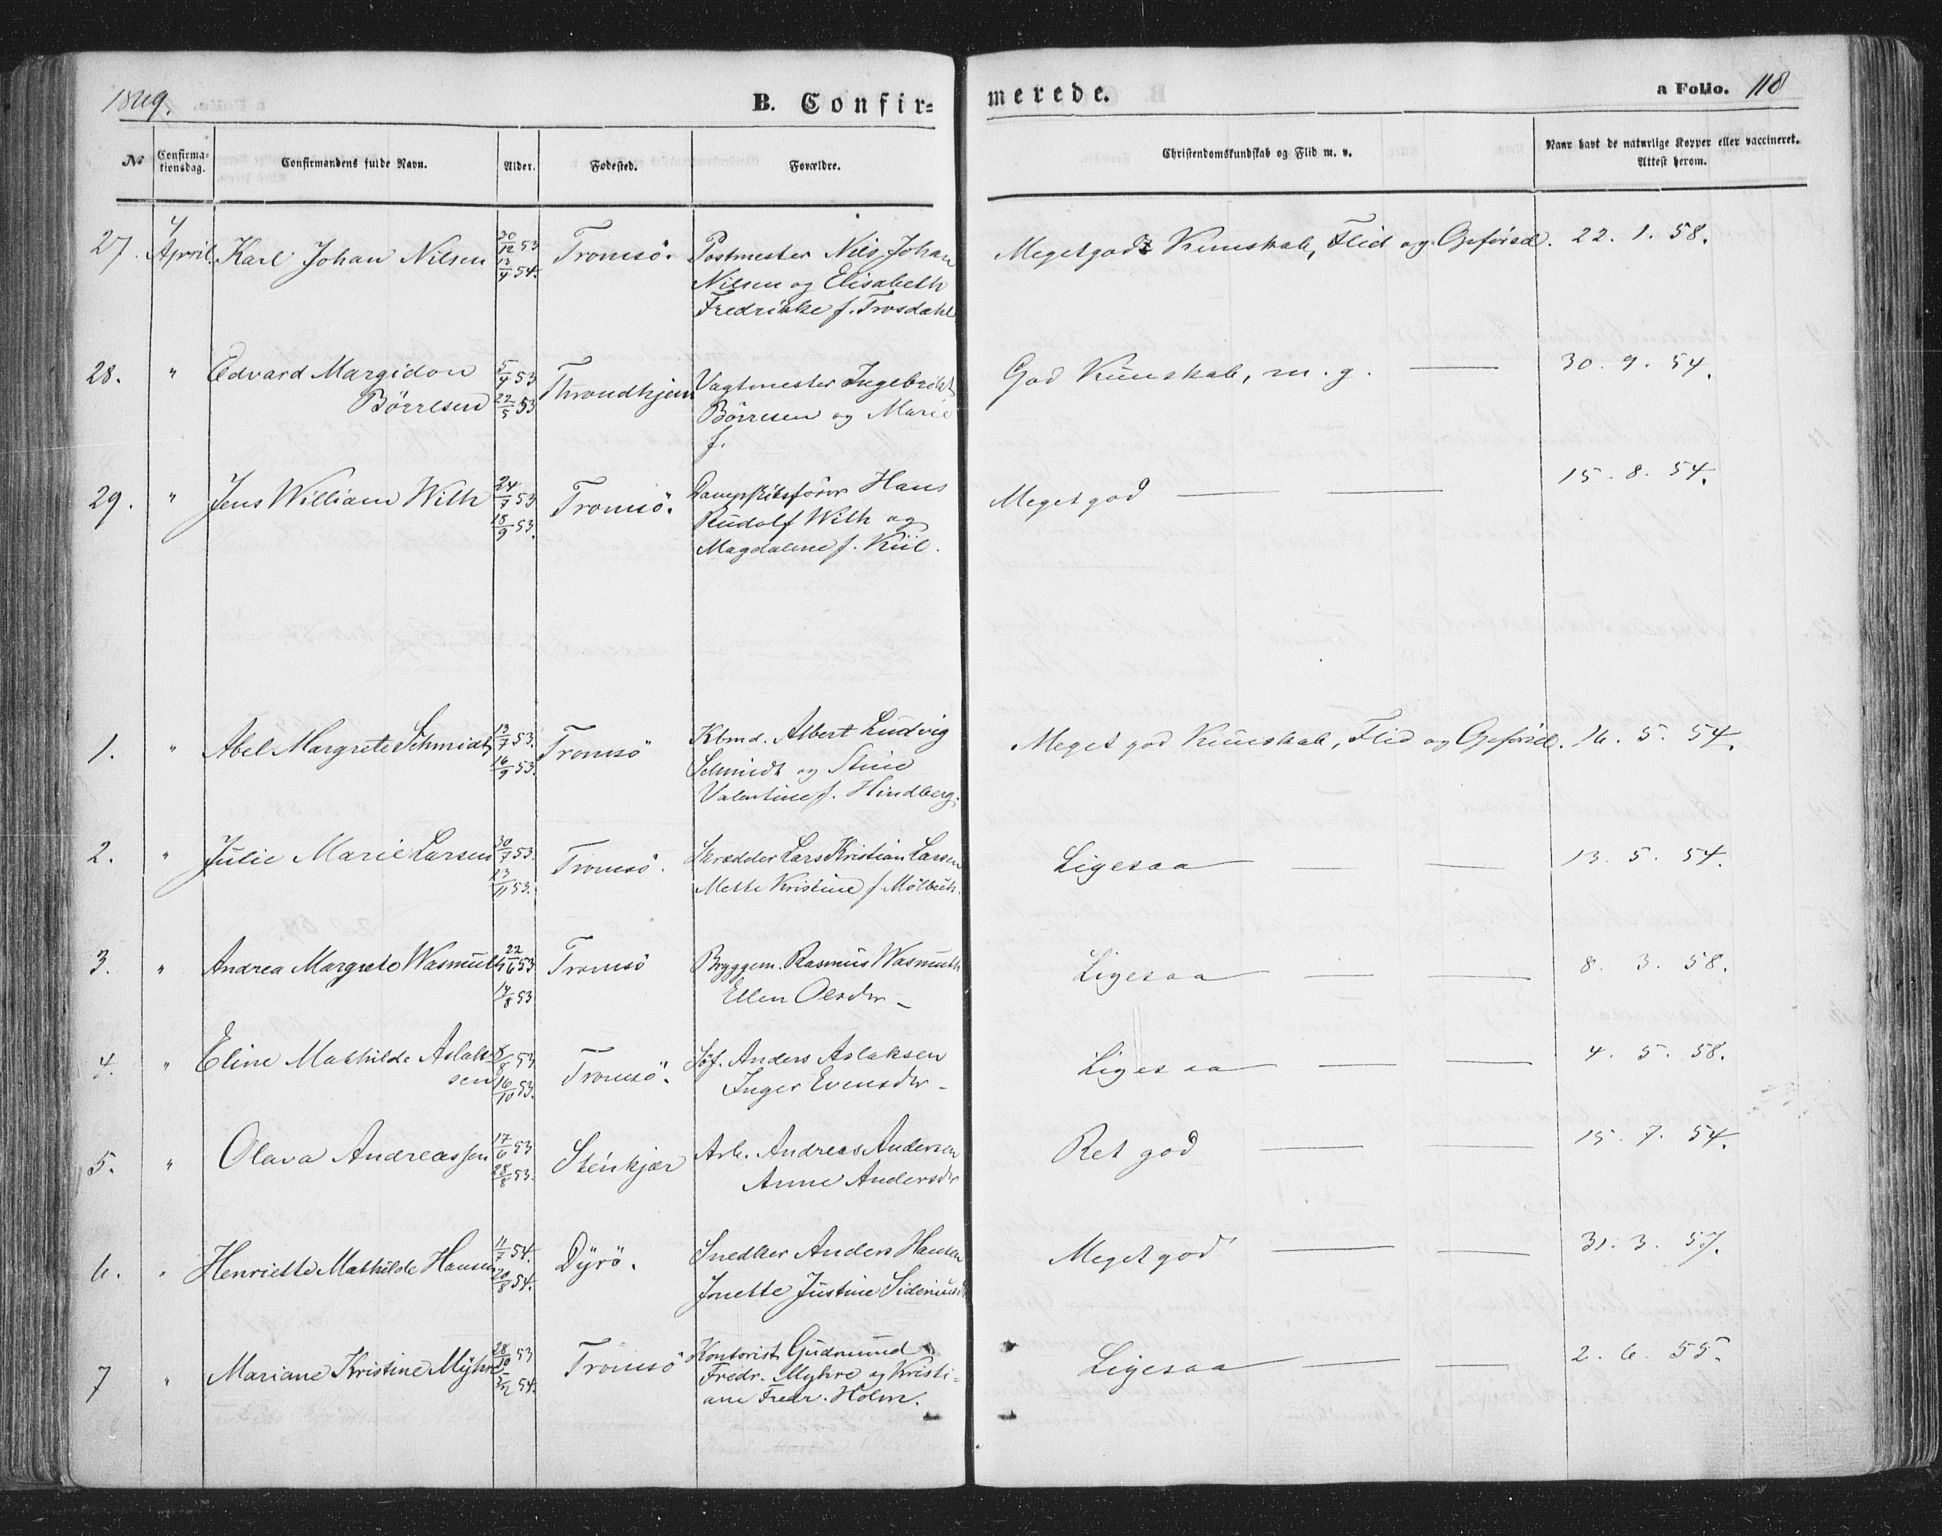 1869.
B. Confir=
merede.
a Folio. 118
No
Confirma-
tionsdag.
Confirmandens fulde Navn.
Alder.
Fødested.
Forældre.
Christendomskundskab og Flid m. v.
Naar havt de naturlige Kopper eller vaccineret.
Attest herom.
27. 7 April. Karl Johan Nilsen 30/12 53 Tromsö. Postmester Nils Johan Meget god Kunskab, Flid og Opførsel. 22. 1. 58.
17/4 54. Nilsen og Elisabeth
Fredrikke f. Trosdahl
28. " Edvard Margidon 5/4 53 Throndhjem Vagtmester Ingebrikt God Kunskab, m. g. — 30. 9. 54.
Börresen 22/5 53 Börresen og Marie
f.
29. " Jens William With 24/7 53 Tromsö. Dampskibsfører Hans Meget god — — 15. 8. 54.
18/9 53. Rudolf With og
Magdalene f. Kiil.
1. " Abel Margrete Schmidt 13/7 53. Tromsö Kbmd. Albert Ludvig Meget god Kunskab, Flid og Opførsel. 16. 5. 54.
16/9 53. Schmidt og Stine
Valentine f. Hindberg.
2. " Julie Marie Larsen 30/7 53. Tromsö. Skrædder Lars Kristian Larsen Ligesaa — — 13. 5. 54.
13/11 53. Mette Kristine f. Mölbuch.
3. " Andrea Margrete Wasmuth 22/6 53 Tromsö Byggem. Rasmus Wasmuth Ligesaa — — 8. 3. 58.
14/8 53 Ellen Olsdr. –
4. " Eline Mathilde Aslak- 8/8 53 Tromsö. Söf. Anders Aslaksen Ligesaa — — 4. 5. 58.
sen 16/10 53. Inger Evensdr –
5. " Olava Andreassen 17/6 53 Stenkjær Arb. Andreas Andersen Ret god — — 15. 7. 54.
28/8 53. Anne Andersdr
6. " Henriette Mathilde Hansen 11/7 54. Dyrö. Snedker Anders Hansen Meget god — — 31. 3. 57.
20/8 54. Jonette Justine
7 " Mariane Kristine Myhre 28/10 53 Tromsö Kontorist Gudmund Ligesaa — — 2. 6. 55.
54. Fredr. Myhre og Kristi-
ane Fredr. Holm.